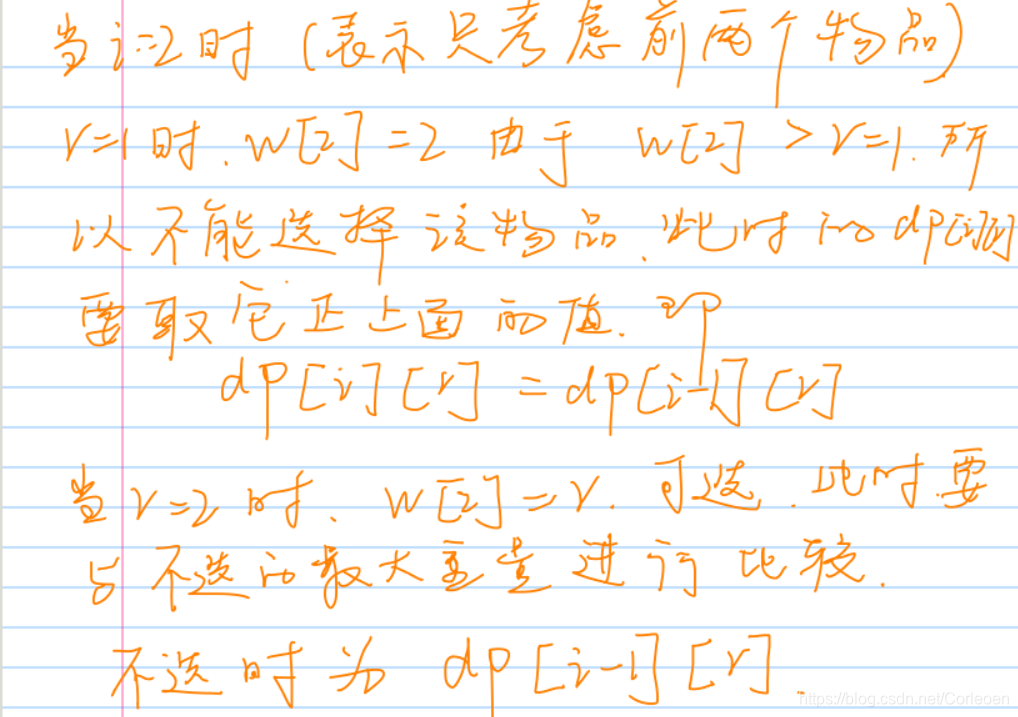 当i=2时（表示只考虑前两个物品）
v=1时.w[2]=2 由于 w[2]>v=1.所
以不能选择该物品.此时的dp[i][v]
要取它正上面的值.即
dp[i][v]=dp[i-1][v]
当v=2时.w[2]=v.可选.此时要
与不选的最大重量进行比较.
不选时为 dp[i-1][v].
https://blog.csdn.net/Corleoen